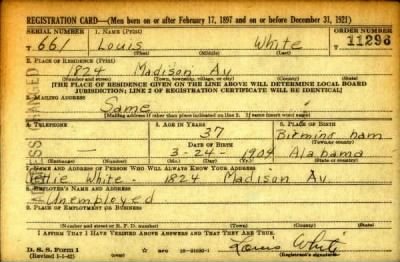 REGISTRATION CARD—(Men born on or after February 17, 1897 and on or before December 31, 1921)
SERIAL NUMBER 1. NAME (Print) ORDER NUMBER
661 Louis White 11296
(First) (Middle) (Last)
2. PLACE OF RESIDENCE (Print)
1824 Madison Av
(Number and street) (Town, township, village, or city) (County) (State)
[THE PLACE OF RESIDENCE GIVEN ON THE LINE ABOVE WILL DETERMINE LOCAL BOARD
JURISDICTION; LINE 2 OF REGISTRATION CERTIFICATE WILL BE IDENTICAL]
3. MAILING ADDRESS
Same
[Mailing address if other than place indicated on line 2. If same insert word same]
4. TELEPHONE 5. AGE IN YEARS 6. PLACE OF BIRTH
37 Birming ham
DATE OF BIRTH (Town or county)
— 3-24-1904 Alabama
(Exchange) (Number) (Mo.) (Day) (Yr.) (State or country)
7. NAME AND ADDRESS OF PERSON WHO WILL ALWAYS KNOW YOUR ADDRESS
White - 1824 Madison Av
8. EMPLOYER'S NAME AND ADDRESS
Unemployed
9. PLACE OF EMPLOYMENT OR BUSINESS
(Number and street or R. F. D. number) (Town) (County) (State)
I AFFIRM THAT I HAVE VERIFIED ABOVE ANSWERS AND THAT THEY ARE TRUE.
D. S. S. Form 1
(Revised 1-1-42)
Louis White
(Registrant's signature)